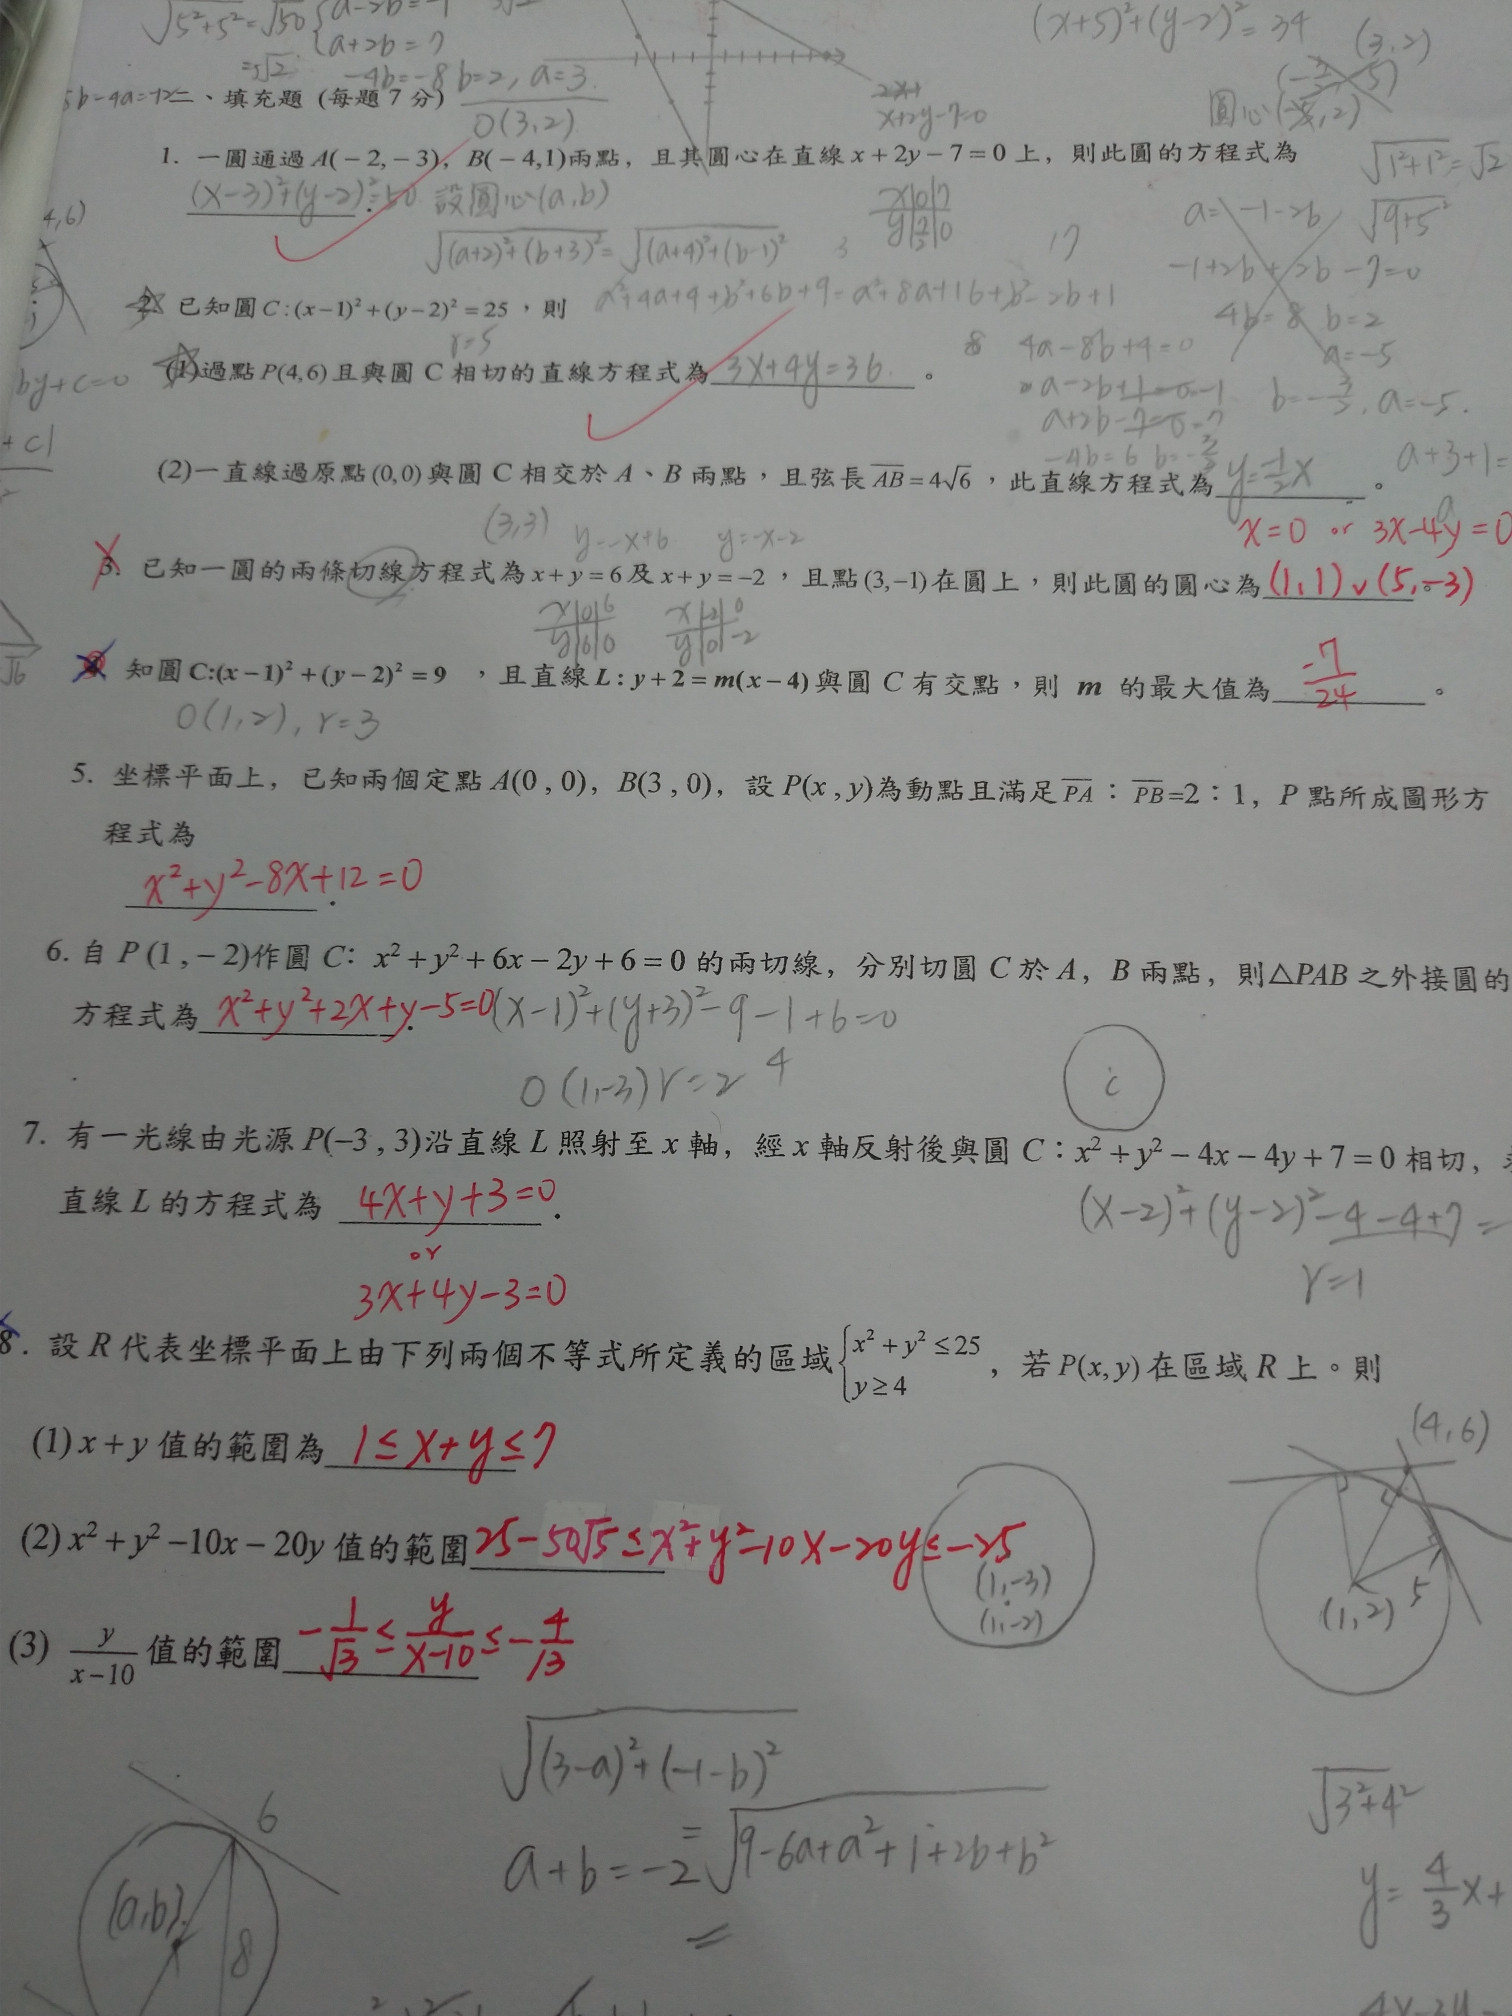 √5²+5²=√50
=5√2
a-2b=-1
a+2b=7
-4b=-8 b=2, a=3.
O(3,2)
(x+5)²+(y-2)²=34
(3,2)
圓心
x+2y-7=0
二、填充題 (每題 7 分)
1. 一圓通過 A(−2,−3)，B(−4,1)兩點，且其圓心在直線 x+2y−7=0 上，則此圓的方程式為
(x-3)²+(y-2)²=50
設圓心(a,b)
√(a+2)²+(b+3)²=√(a+4)²+(b-1)²
x|0|7
√1²+1²=√2
a=-1-2b
-1+2b+2b-7=0
4b=8 b=2
a=-5
已知圓 C:(x−1)²+(y−2)²=25，則
a²+4a+4+b²+6b+9=a²+8a+16+b²-2b+1
r=5
4a-8b+4=0
(1)過點 P(4,6) 且與圓 C 相切的直線方程式為 3x+4y=36 。
by+c=0
(2)一直線過原點(0,0)與圓 C 相交於 A、B 兩點，且弦長 AB=4√6，此直線方程式為 y=-1/2x 。
x=0 or 3x-4y=0
(3,3) y=-x+6 y=-x-2
3. 已知一圓的兩條切線方程式為 x+y=6 及 x+y=−2，且點(3,−1)在圓上，則此圓的圓心為 (1,1) ∨ (5,-3)
x|0|6
y|6|0
x|-2|0
y|0|-2
知圓 C:(x−1)²+(y−2)²=9 ，且直線 L:y+2=m(x−4)與圓 C 有交點，則 m 的最大值為 -7/24 。
O(1,2), r=3
5. 坐標平面上，已知兩個定點 A(0,0)，B(3,0)，設 P(x,y)為動點且滿足 PA：PB=2：1，P 點所成圖形方
程式為
x²+y²-8x+12=0
6. 自 P(1,−2)作圓 C：x²+y²+6x−2y+6=0 的兩切線，分別切圓 C 於 A，B 兩點，則△PAB 之外接圓的
方程式為 x²+y²+2x+y-5=0 (x-1)²+(y+3)²-9-1+6=0
O(1,-3) r=2 4
7. 有一光線由光源 P(−3,3)沿直線 L 照射至 x 軸，經 x 軸反射後與圓 C：x²+y²−4x−4y+7=0 相切，
直線 L 的方程式為 4x+y+3=0 .
or
3x+4y-3=0
(x-2)²+(y-2)²-4-4+7=
r=1
8. 設 R 代表坐標平面上由下列兩個不等式所定義的區域{x²+y²≤25
y≥4
，若 P(x,y) 在區域 R 上。則
(1) x+y 值的範圍為 1≤x+y≤7
(4,6)
(2) x²+y²−10x−20y 值的範圍 25-50√5≤x²+y²-10x-20y≤-25
(1,-3)
(1,-2)
(1,2) 5
(3) y/x−10 值的範圍 -1/√3≤y/x-10≤-4/13
√(3-a)²+(-1-b)²
=√9-6a+a²+1+2b+b²
a+b=-2
=
6
(a,b)
8
√3²+4²
y=4/3x+